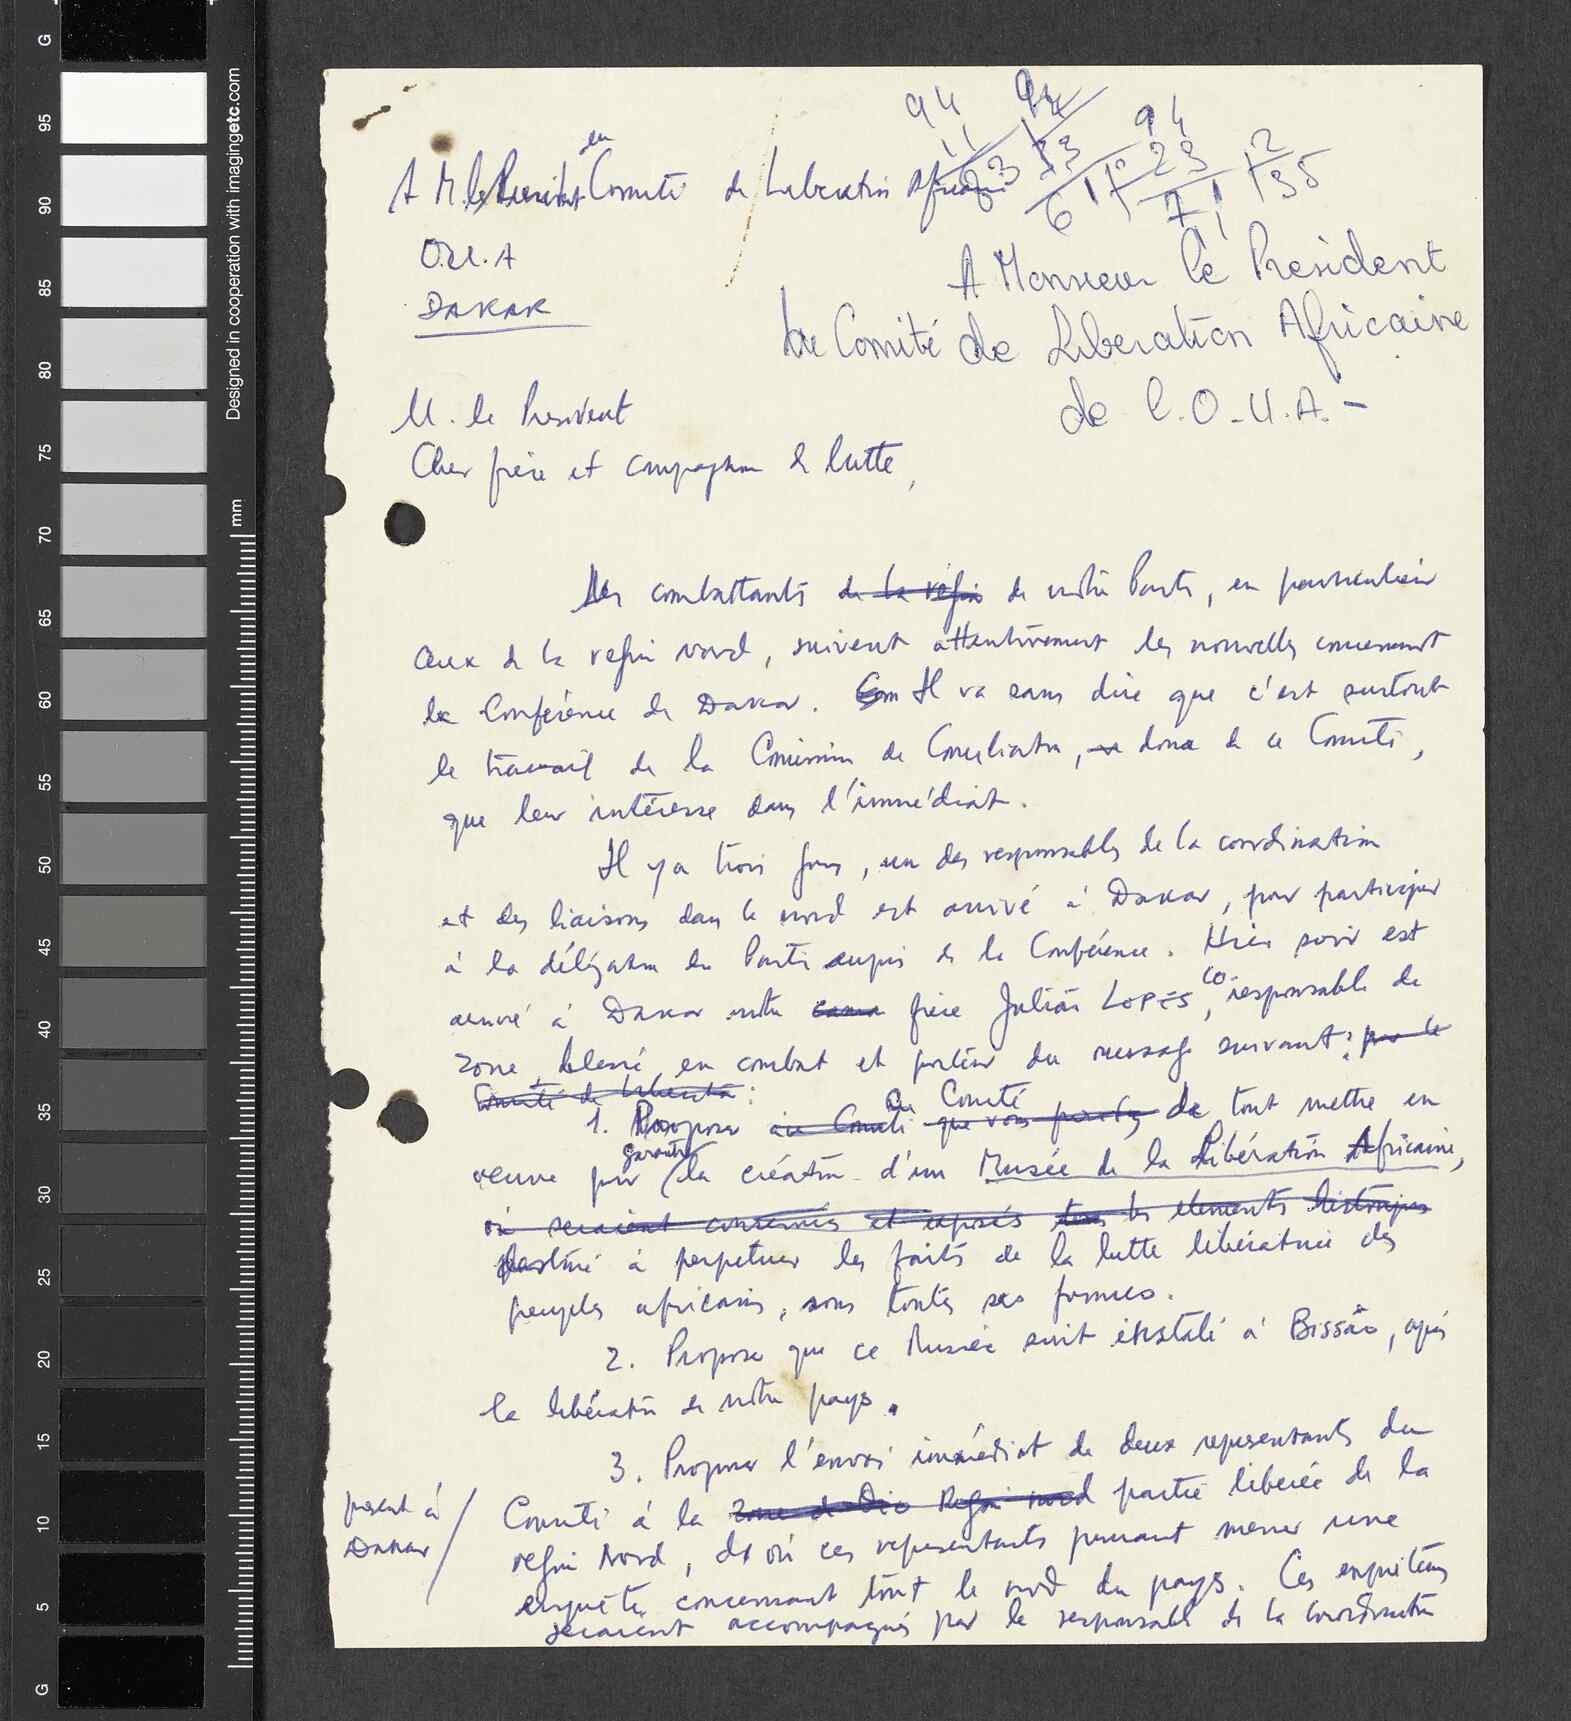 94 94 94
11 33 23 12
83 61 71 35
A M. le Président du Comité de Libération Africaine
O.U.A
DAKAR
A Monsieur le Président
du Comité de Libération Africaine
de l'O.U.A.-
M. le Président
Cher frère et compagnon de lutte,
Les combattants de la région de notre Parti, en particulier
ceux de la région nord, suivent attentivement les nouvelles concernant
la Conférence de Dakar. Com Il va sans dire que c'est surtout
le travail de la Comission de Conciliation, donc de ce Comité,
que leur intéresse dans l'immédiat.
Il y a trois jours, un des responsables de la coordination
et des liaisons dans le nord est arrivé à Dakar, pour participer
à la délégation du Parti auprès de la Conférence. Hier soir est
arrivé à Dakar notre cama frère Julião LOPES, co-responsable de
zone, blessé en combat et porteur du message suivant: pour le
Comité de Libération:
1. Proposer au Comité que vous présidez au Comité de tout mettre en
oeuvre pour garantir la création d'un Musée de la Libération Africaine,
où seraient conservés et exposés tous les elements historiques
destiné à perpetuer les faits de la lutte libératrice des
peuples africains, sous toutes ses formes.
2. Proposer que ce Musée soit installé à Bissão, après
la libération de notre pays.
3. Proposer l'envoi immédiat de deux representants du
Comité présent à Dakar / à la zone de Region nord partie liberée de la
région Nord, d'où ces representants peuvent mener une
enquête concernant tout le nord du pays. Ces enquêteurs
seraient accompagnés par le responsable de la coordination
Designed in cooperation with imagingetc.com
mm
G
95
90
85
80
75
70
65
60
55
50
45
40
35
30
25
20
15
10
5
G